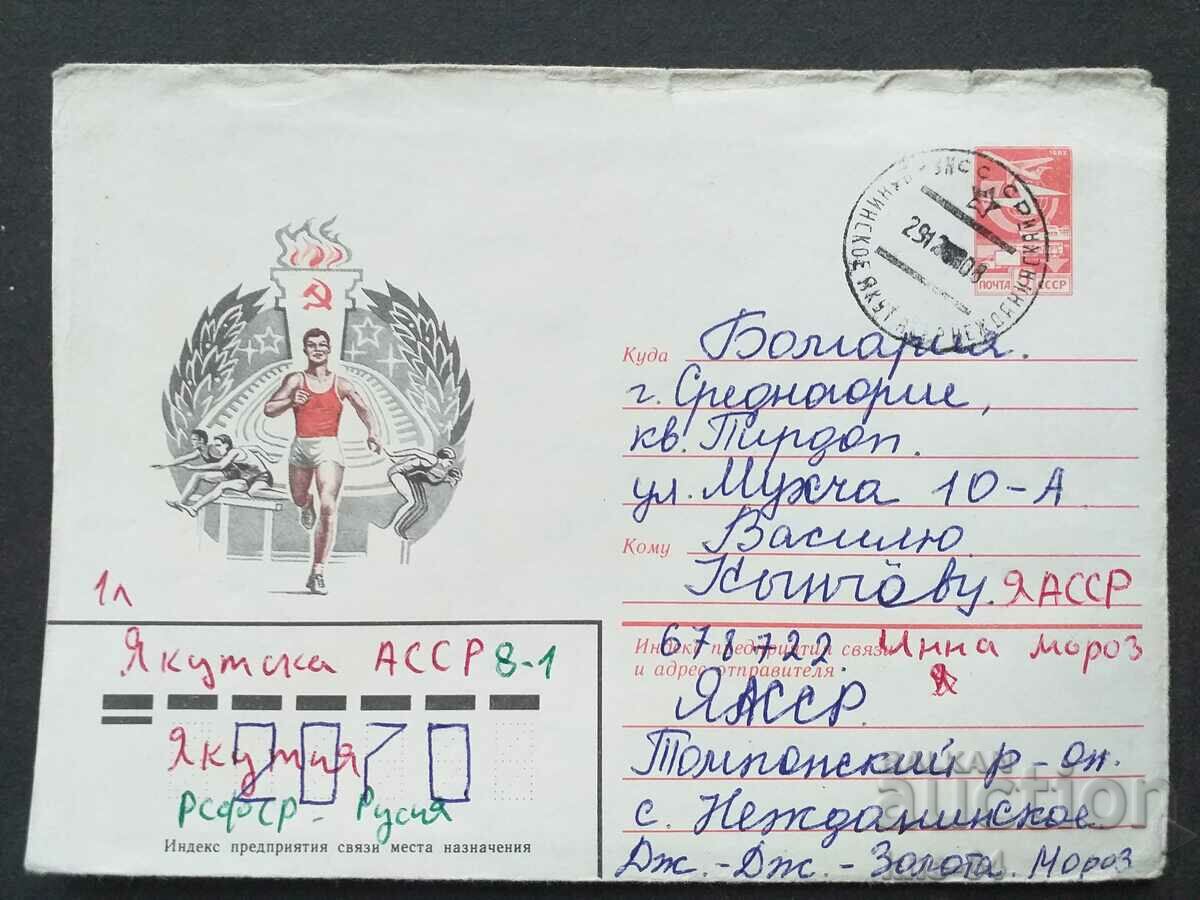 1982
ПОЧТА СССР
29 12 08
Куда Болгария.
г. Средногорие,
кв. Пирдоп.
ул. Мухча 10-А
Кому Василю
Кынчову. ЯАССР
1л
Якутска АССР 8-1
Якутия
РСФСР - Русия
Индекс предприятия связи места назначения
Индекс предприятия связи
и адрес отправителя
678722. Инна Мороз
ЯАССР
Томпонский р-он.
с. Нежданинское
Дж.-Дж.-Золота. Мороз
BALKAN
auction